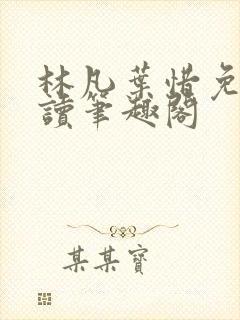 林凡葉惜免
讀筆趣閣
某某寶